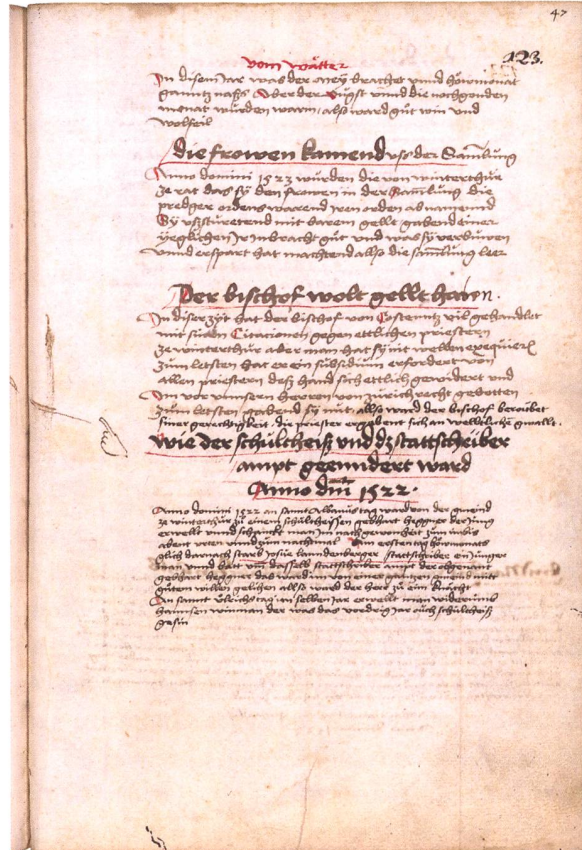 47
123.
vom wätter
In disem Jar was der meÿ brachet vnnd höwmonat
gantz naß Aber der Augst vnnd die nochgonden
monat wurden warm / also ward gůt win vnd
wolfeil
die frowen kamend vss der Samlung
Anno domini 1523 wurden die von winterthur
ze rat das sÿ den frowen in der Samlung die
prediger ordens warend Iren orden ab namend
Sÿ vss stüretend mit barem gellt gabend einer
yeglichen Ir Inbracht gůt vnd was sÿ verbuwen
vnnd erspart hat machtend allso die samlung leer
Der bischof wolt gellt hann.
In diser zÿt hat der bischof von Costenntz vil gehandlet
mit Citationen gegen ettlichen priestern
ze winterthur aber man hat sÿ nit wellen exequieren
zum letsten hat er ein subsidium erfordert von
allen priestern deß hand sich ettlich gewidert vnd
In vor vnnsern herren von zürich recht gebotten
zum letsten gabend sÿ nüt. allso ward der bischof beroubet
siner gerechtigkeit. die priester ergabent sich an weltlichen gwallt.
wie der schultheiß vnd dz stattschriber
ampt geenndert ward
Anno dm̄ 1522.
Anno domini 1522 an sannt Albanus tag ward von der gmeind
ze winterthur zu einem schultheissen gebhart hegner der Jung
erwellt vnnd schannckt man im nach gewonheit zum imbis
abent roten vnnd zum nachtmal Am ersten tag höwmonats
glich darnach starb Josue lanndenberger stattschriber ein Junger
man vnd batt vm dasselb stattschriber ampt der obgenant
gebhart hegner das ward im von einer gantzen gmeind mit
gůtem willen gelichen allso ward der herr zu ein knächt
An sannt Ulrichs tag in selben Jar erwellt man widerumb
hannsen winman der was das vordrig Jar ouch schultheiß
gesin